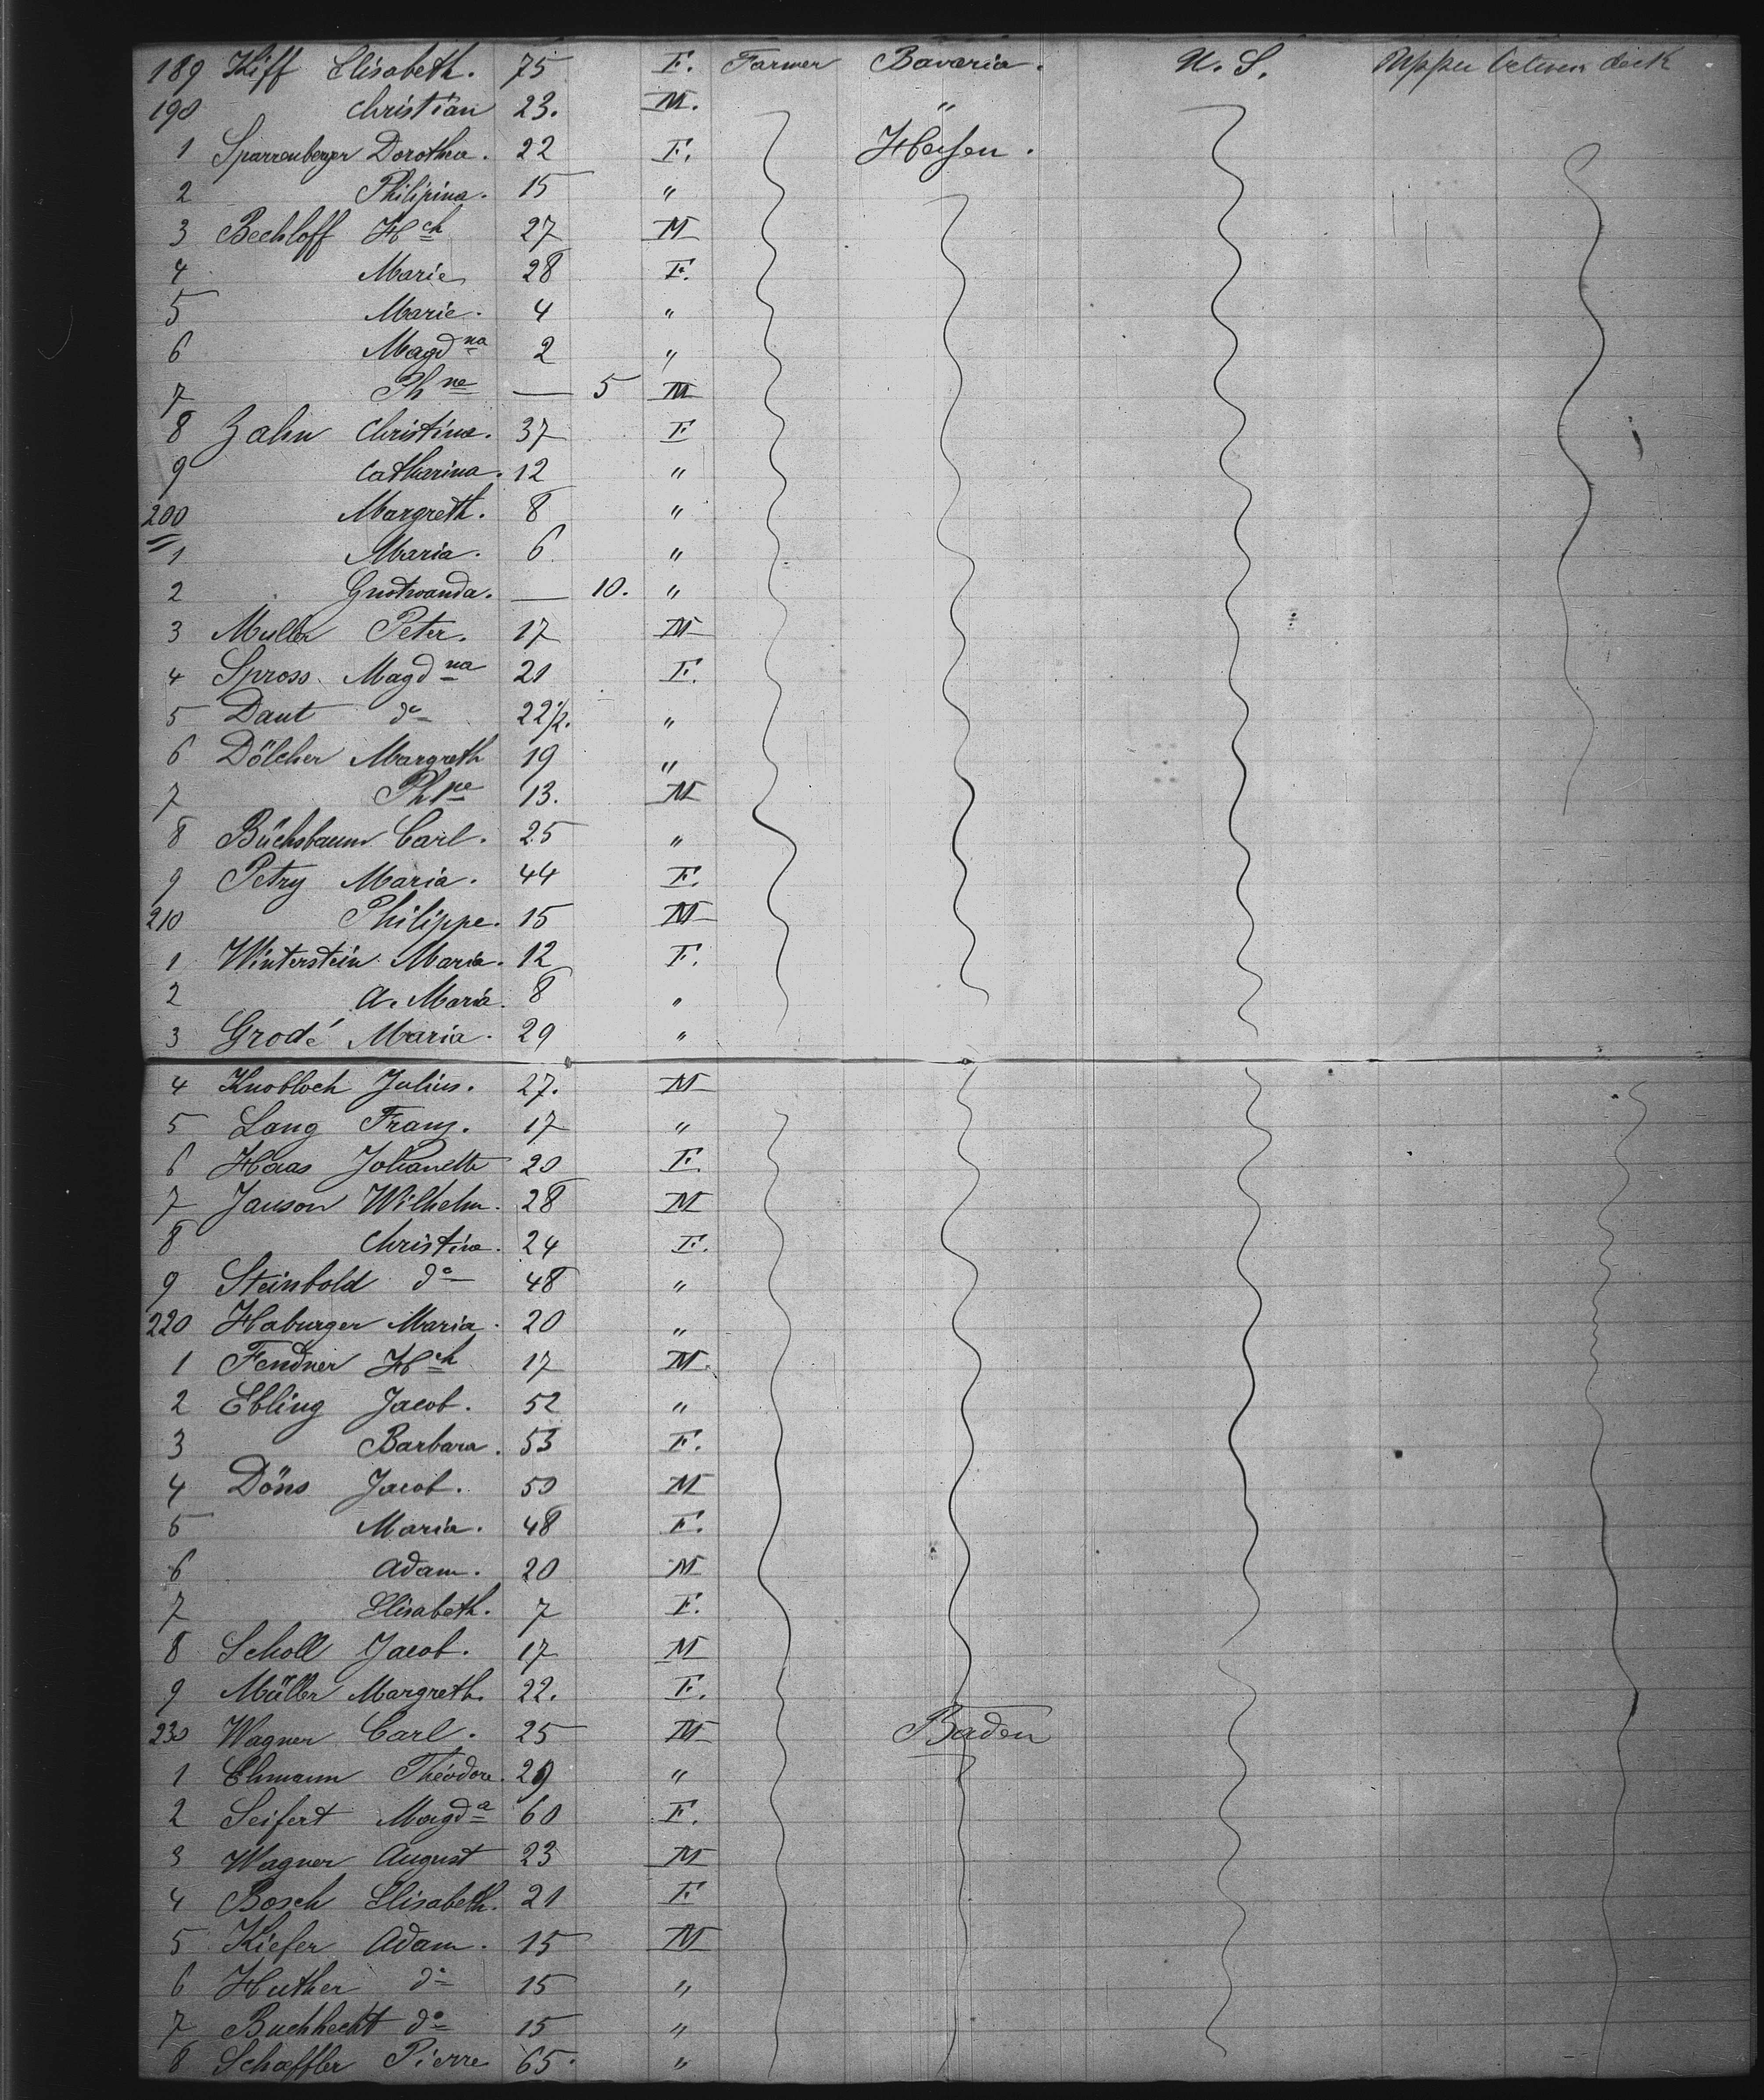 189 Kliff Elisabeth. 75 F. Farmer Bavaria. U. S. Upper between deck
190 Christian 23. M. "
1 Sparrenberger Dorothea. 22 F. Hessen.
2 Philipina. 15 "
3 Bechloff Hch 27 M
4 Marie 28 F.
5 Marie. 4 "
6 Magdna 2 "
7 Phne — 5 M
8 Zahn Christina. 37 F
9 Catharina. 12 "
200 Margreth. 8 "
1 Maria. 6 "
2 — 10. "
3 Muller Peter. 17 M
4 Spross Magdna 21 F.
5 Daut do 22 1/2. "
6 Dölcher Margreth 19 "
7 Phpe 13. M
8 Büchsbaum Carl. 25 "
9 Petry Maria. 44 F.
210 Philippe. 15 M
1 Winterstein Maria. 12 F.
2 A. Maria. 8 "
3 Grodé Maria. 29 "
4 Knobloch Julius. 27. M
5 Lang Franz. 17 "
6 Haas Johanette 20 F.
7 Janson Wilhelm. 28 M
8 Christina. 24 F.
9 Steinbold do 48 "
220 Haburger Maria. 20 "
1 Fendner Hch 17 M.
2 Ebling Jacob. 52 "
3 Barbara. 53 F.
4 Döns Jacob. 50 M
5 Maria. 48 F.
6 Adam. 20 M
7 Elisabeth. 7 F.
8 Scholl Jacob. 17 M
9 Müller Margreth. 22. F.
230 Wagner Carl. 25 M Baden
1 Ehmann Théodore. 29 "
2 Seifert Magda 60 F.
3 Wagner August 23 M
4 Bosch Elisabeth. 21 F
5 Kiefer Adam. 15 M
6 Huther do 15 "
7 Buchhecht do 15 "
8 Schaffler Pierre 65. "